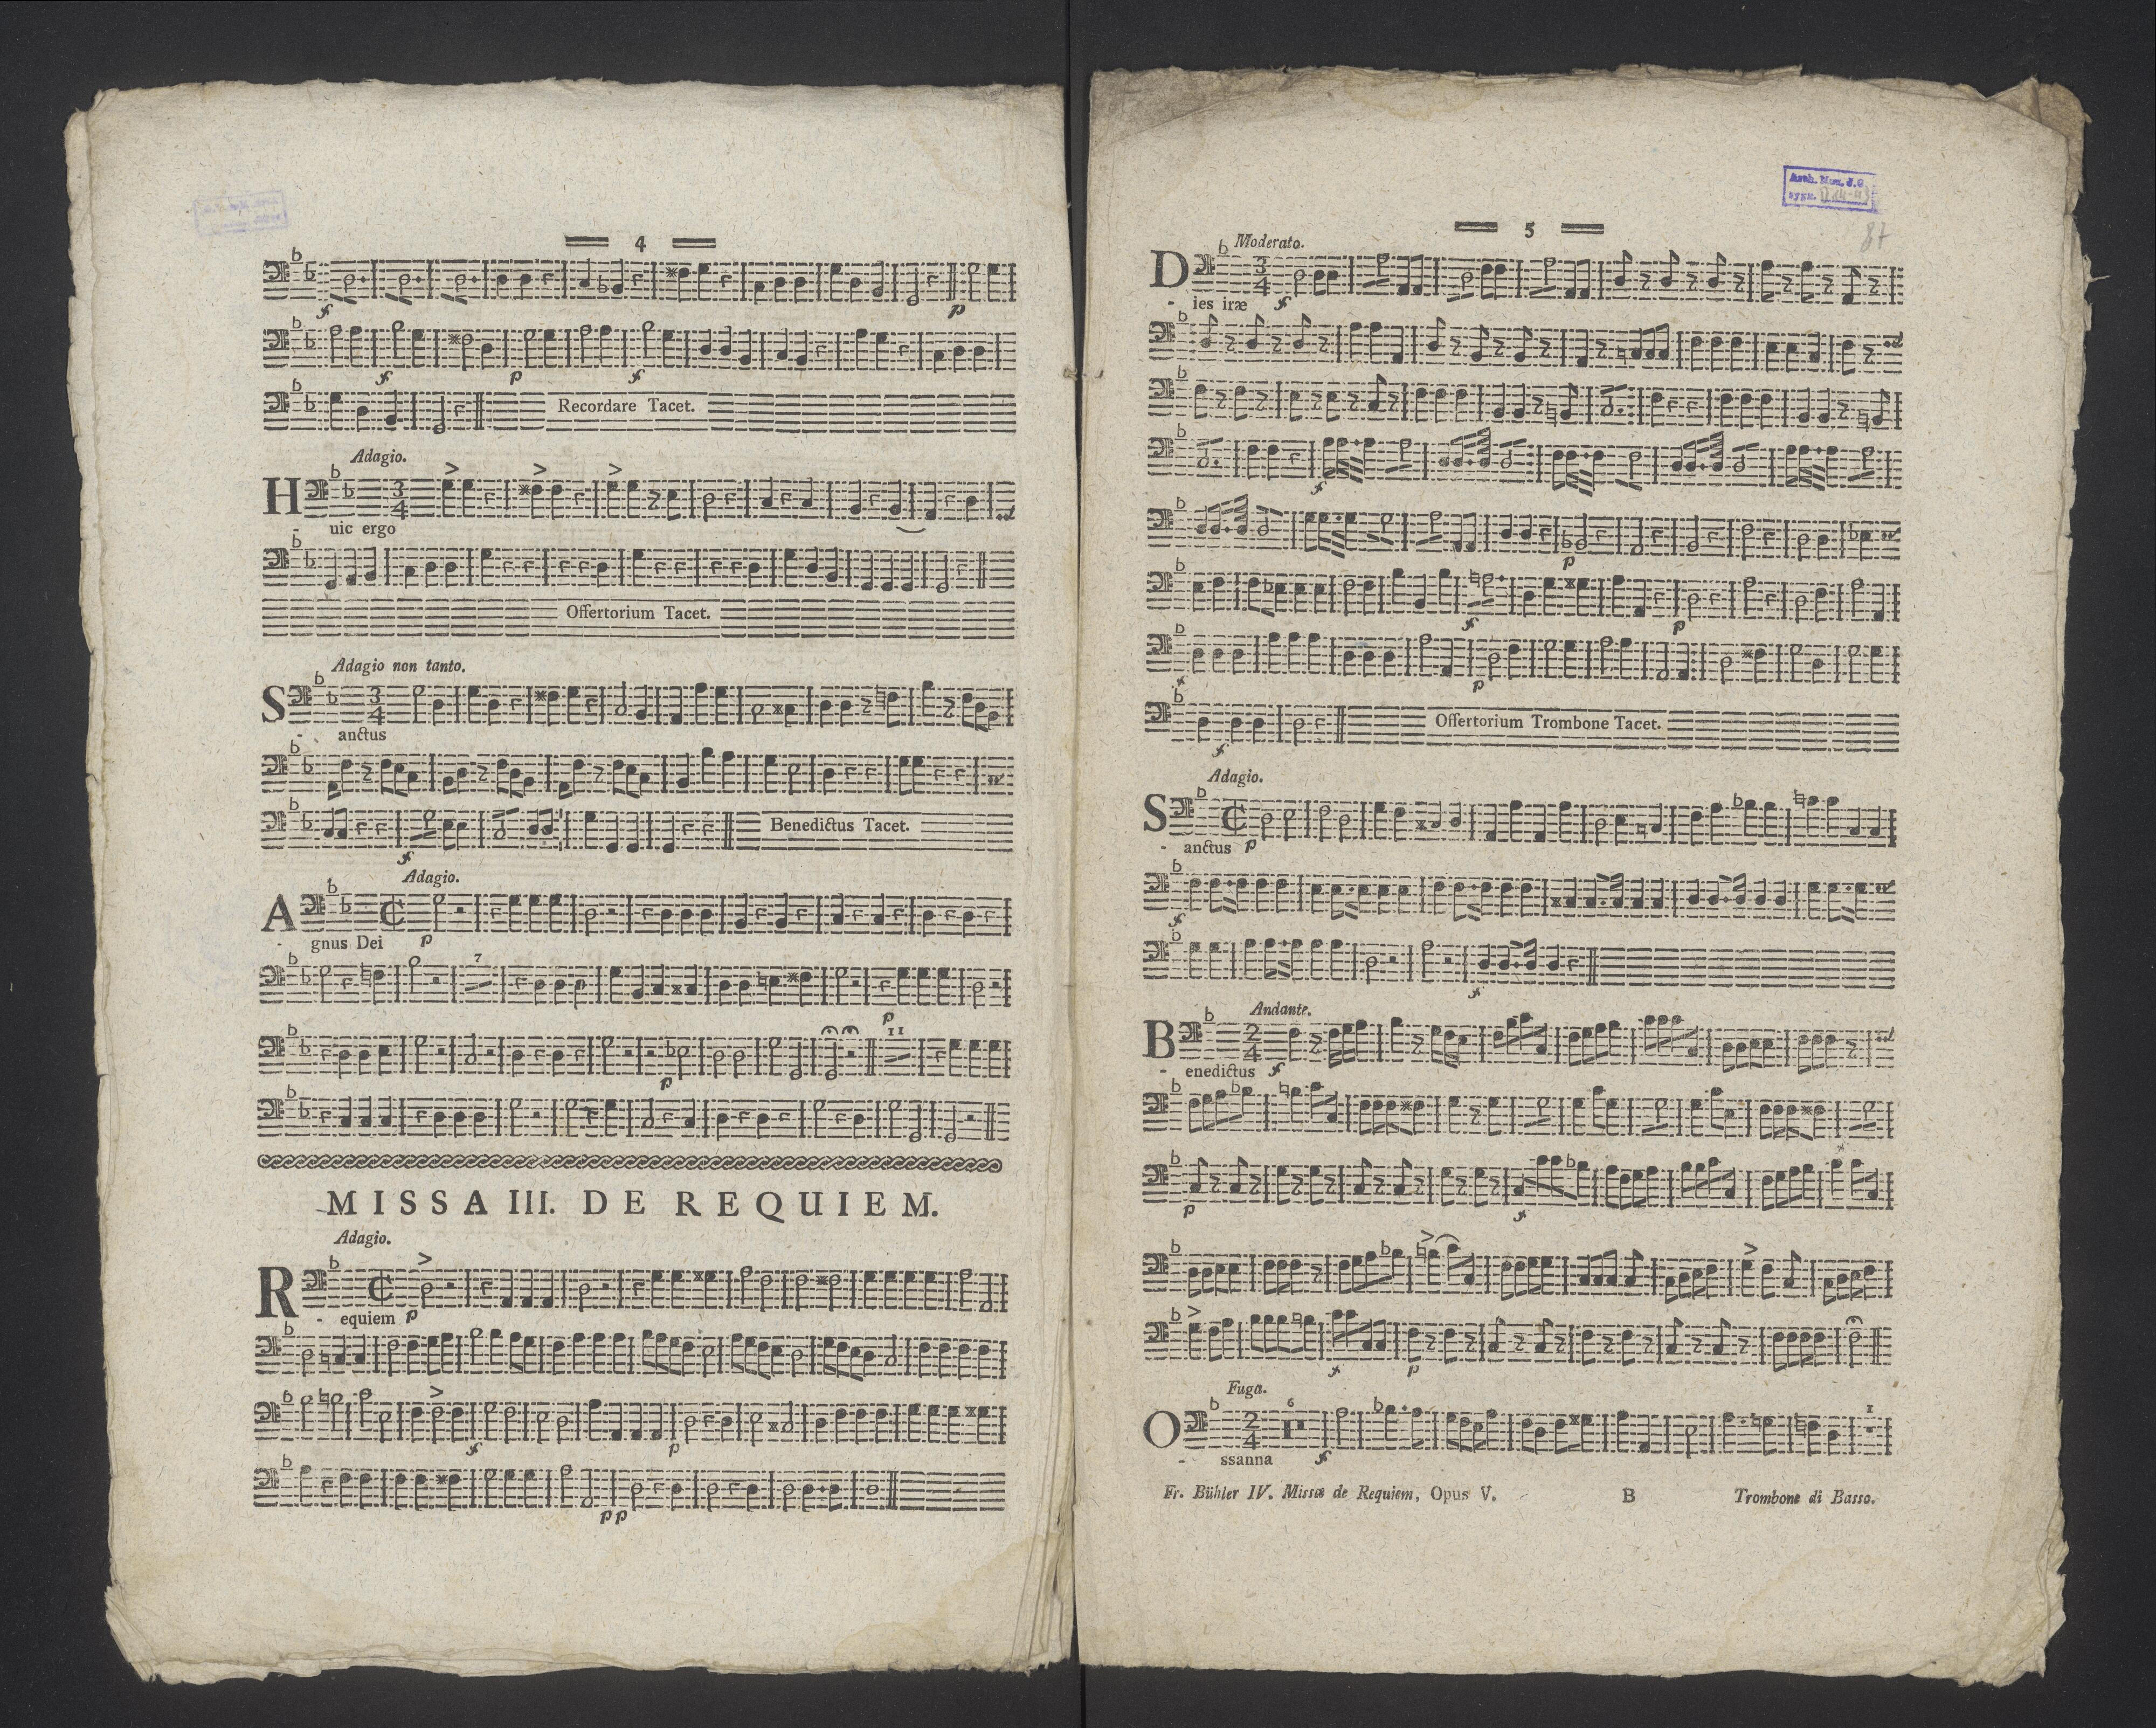 4
f
p
f
p
f
Recordare Tacet.
Adagio.
3
4
H
- uic ergo
Offertorium Tacet.
Adagio non tanto.
3
4
S
- anctus
f
Benedictus Tacet.
Adagio.
A
- gnus Dei
p
7
p
11
p
MISSA III. DE REQUIEM.
Adagio.
R
- equiem p
f
p
pp
5
Arch. Muz. J.G.
sygn.
87
Moderato.
3
4
D
- ies iræ f
f
p
f
p
f
p
f
Offertorium Trombone Tacet.
Adagio.
S
- anctus p
f
f
Andante.
2
4
B
- enedictus f
p
f
f
p
Fuga.
6
2
4
1
O
- ssanna f
Fr. Bühler IV. Missæ de Requiem, Opus V.
B
Trombone di Basso.